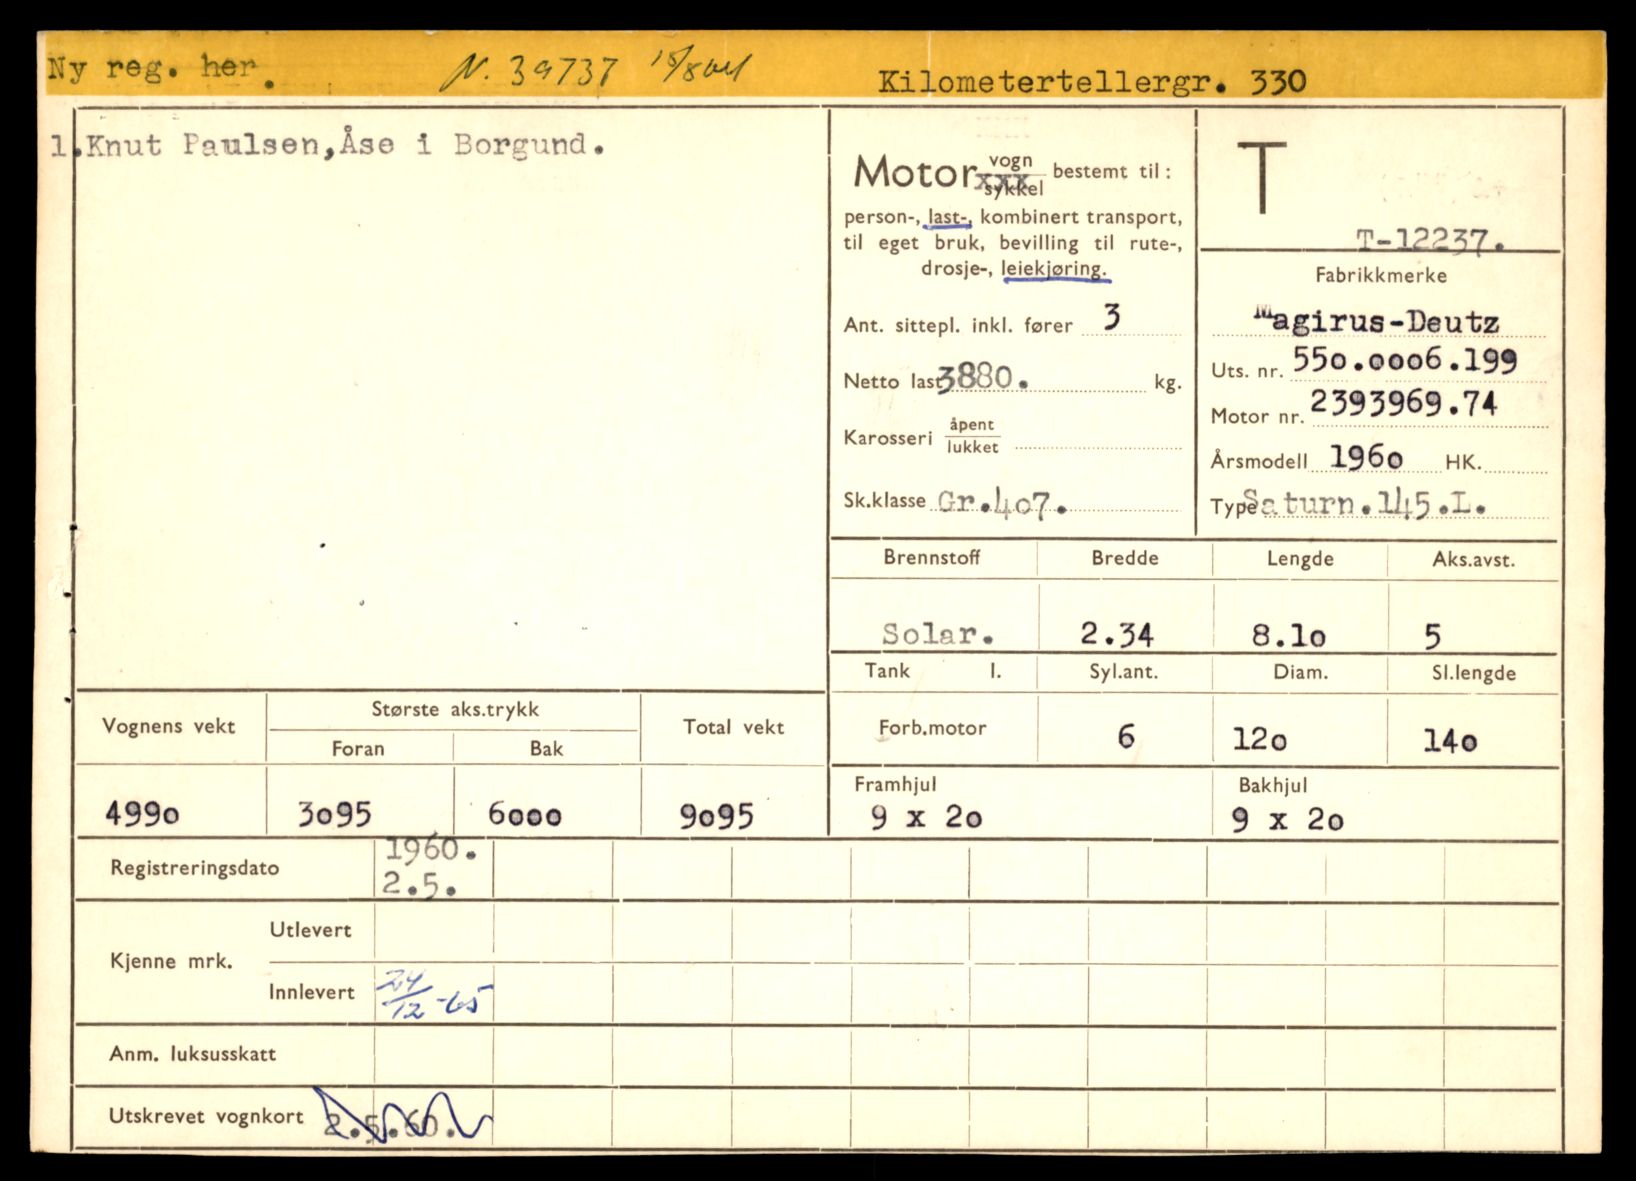 Ny reg. her.
N. 39737
Kilometertellergr. 330
1. Knut Paulsen, Åse i Borgund.
Motor vogn
xxx
sykkel
bestemt til:
person-, last-, kombinert transport,
til eget bruk, bevilling til rute-,
drosje-, leiekjøring.
Ant. sittepl. inkl. fører 3
Netto last 3880. kg.
Karosseri åpent
lukket
Sk.klasse Gr.407.
T
T-12237.
Fabrikkmerke
Magirus-Deutz
Uts. nr. 550.0006.199
Motor nr. 2393969.74
Årsmodell 1960 HK.
Type Saturn.145.L.
Brennstoff Bredde Lengde Aks.avst.
Solar. 2.34 8.10 5
Tank l. Syl.ant. Diam. Sl.lengde
Forb.motor 6 120 140
Framhjul Bakhjul
9 x 20 9 x 20
Vognens vekt Største aks.trykk Total vekt
Foran Bak
4990 3095 6000 9095
Registreringsdato 1960.
2.5.
Kjenne mrk. Utlevert
Innlevert 24/12-65
Anm. luksusskatt
Utskrevet vognkort 2.5.60.